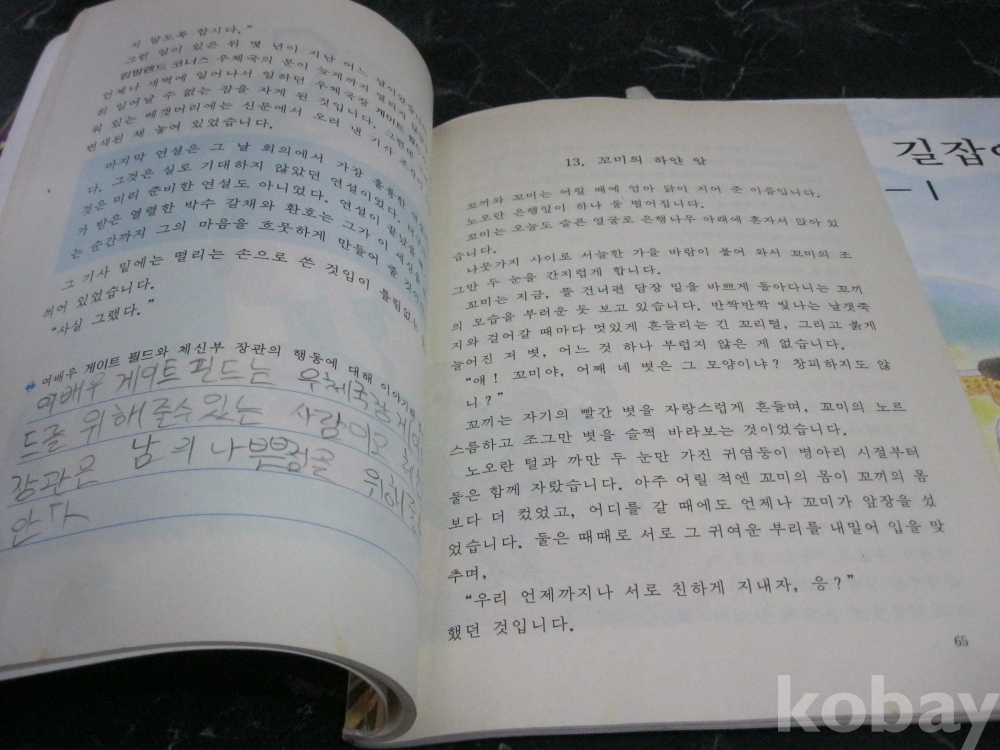 지 말도록 합시다."
그런 일이 있은 뒤 몇 년이 지난 어느 날이었습
킴벌랜드 코너스 우체국의 문이 늦게까지 열리지
언제나 새벽에 일어나서 일하던 우체국장 게이트
히 일어날 수 없는 잠을 자게 된 것입니다. 그런데
워 있는 베갯머리에는 신문에서 오려 낸 기사
변색된 채 놓여 있었습니다.
마지막 연설은 그 날 회의에서 가장 훌륭한
다. 그것은 실로 기대하지 않았던 연설이었다.
것은 미리 준비한 연설도 아니었다. 연설이 끝났을
가 받은 열렬한 박수 갈채와 환호는 그가 이 세상을
는 순간까지 그의 마음을 흐뭇하게 만들어 줄 것
그 기사 밑에는 떨리는 손으로 쓴 것임이 틀림없는
씌어 있었습니다.
"사실 그랬다."
여배우 게이트 필드와 체신부 장관의 행동에 대해 이야기해
여배우 게이트 필드는 우체국장 게이
드를 위해 줄수 있는 사람이오
장관은 남의 나쁜점을 위해주
안다
13. 꼬미의 하얀 알
꼬끼와 꼬미는 어릴 때에 엄마 닭이 지어 준 이름입니다.
노오란 은행잎이 하나 둘 떨어집니다.
꼬미는 오늘도 슬픈 얼굴로 은행나무 아래에 혼자서 앉아 있
습니다.
나뭇가지 사이로 서늘한 가을 바람이 불어 와서 꼬미의 조
그만 두 눈을 간지럽게 합니다.
꼬미는 지금, 뜰 건너편 담장 밑을 바쁘게 돌아다니는 꼬끼
의 모습을 부러운 듯 보고 있습니다. 반짝반짝 빛나는 날갯죽
지와 걸어갈 때마다 멋있게 흔들리는 긴 꼬리털, 그리고 붉게
늘어진 저 볏, 어느 것 하나 부럽지 않은 게 없습니다.
"얘! 꼬미야, 어째 네 볏은 그 모양이냐? 창피하지도 않
니?"
꼬끼는 자기의 빨간 볏을 자랑스럽게 흔들며, 꼬미의 노르
스름하고 조그만 볏을 슬쩍 바라보는 것이었습니다.
노오란 털과 까만 두 눈만 가진 귀염둥이 병아리 시절부터
둘은 함께 자랐습니다. 아주 어릴 적엔 꼬미의 몸이 꼬끼의 몸
보다 더 컸었고, 어디를 갈 때에도 언제나 꼬미가 앞장을 섰
었습니다. 둘은 때때로 서로 그 귀여운 부리를 내밀어 입을 맞
추며,
"우리 언제까지나 서로 친하게 지내자, 응?"
했던 것입니다.
65
길잡이
-1
kobay